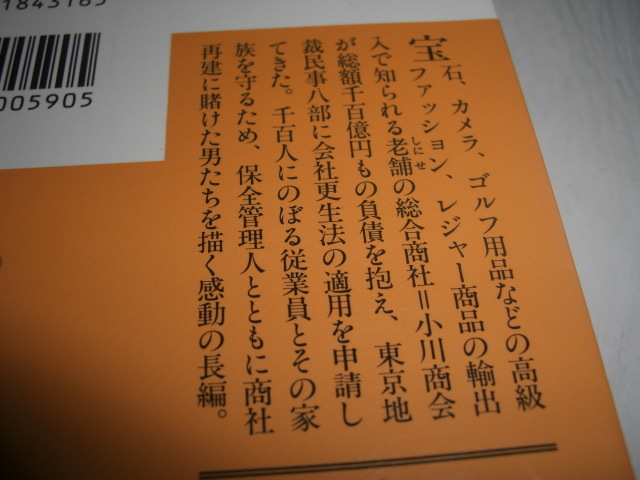 1843165
005905
宝石、カメラ、ゴルフ用品などの高級
ファッション、レジャー商品の輸出
入で知られる老舗の総合商社＝小川商会
しにせ
が総額千百億円もの負債を抱え、東京地
裁民事八部に会社更生法の適用を申請し
てきた。千百人にのぼる従業員とその家
族を守るため、保全管理人とともに商社
再建に賭けた男たちを描く感動の長編。